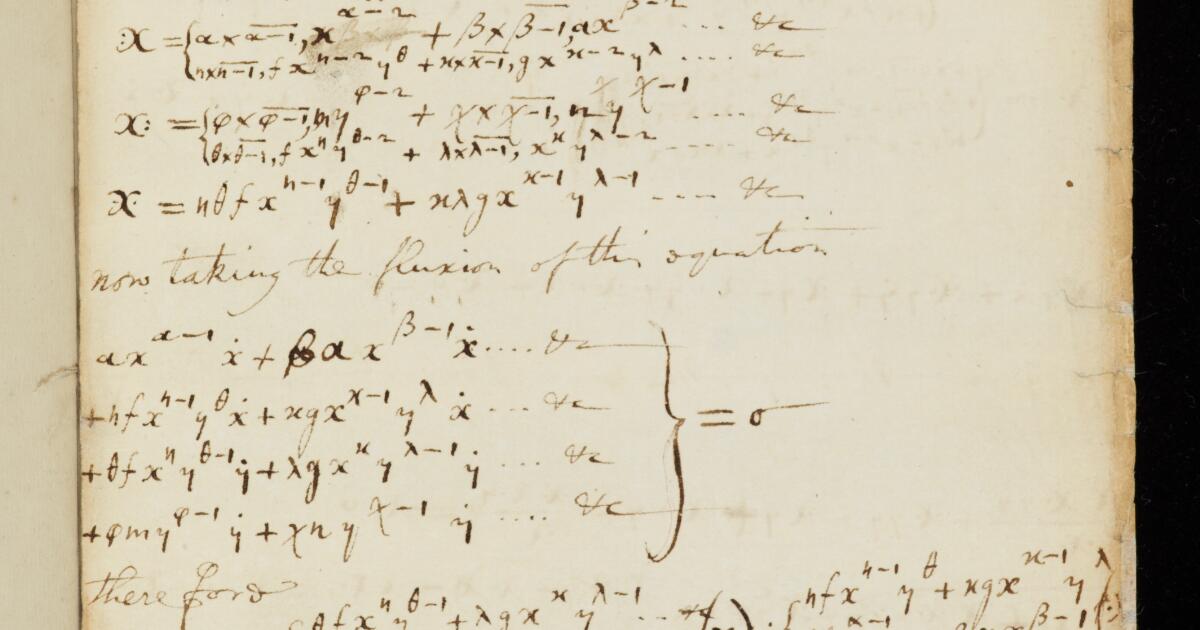 :X = { α×α−1, x^{α−2} + β×β−1, ax^{β−2} .... &c
{ η×η−1, f x^{η−2} y^θ + κ×κ−1, g x^{κ−2} y^λ .... &c
X: = { φ×φ−1, my^{φ−2} + χ×χ−1, n y^{χ−1} .... &c
{ θ×θ−1, f x^η y^{θ−2} + λ×λ−1, x^κ y^{λ−2} .... &c
X = ηθf x^{η−1} y^{θ−1} + κλg x^{κ−1} y^{λ−1} .... &c
now taking the fluxion of this equation
αx^{α−1} ẋ + βa x^{β−1} ẋ .... &c
+ηf x^{η−1} y^θ ẋ + κg x^{κ−1} y^λ ẋ ... &c
+θf x^η y^{θ−1} ẏ + λg x^κ y^{λ−1} ẏ .... &c } = o
+φm y^{φ−1} ẏ + χn y^{χ−1} ẏ .... &c
therefore
ηf x^{η−1} y^θ + κg x^{κ−1} y^λ
θf x^η y^{θ−1} + λg x^κ y^{λ−1} ...